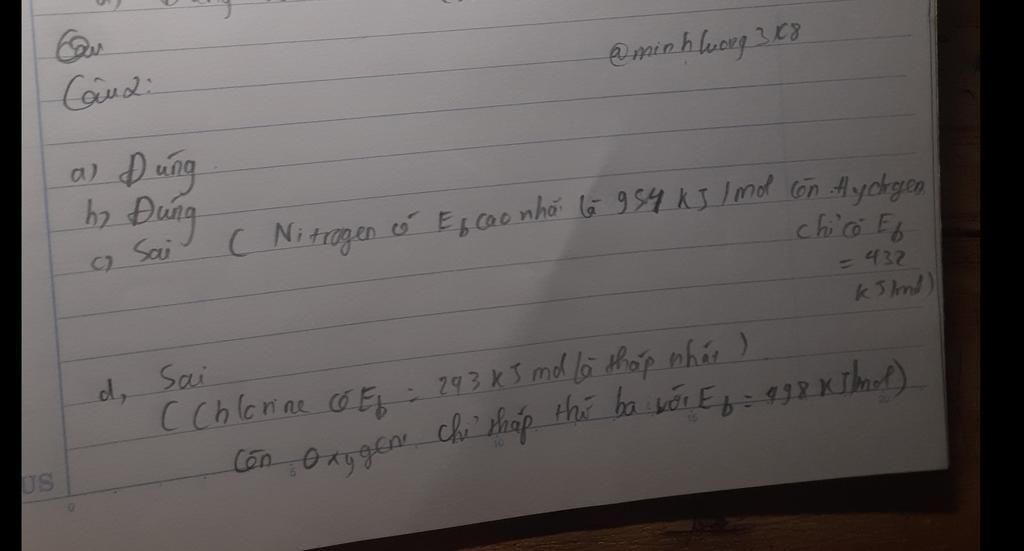 Câu
@minhluong3K8
Câu2:
a) Đúng
b) Đúng
c) Sai ( Nitrogen có Eb cao nhất là 954 KJ/mol còn Hydrgen
chỉ có Eb
= 432
KJ/mol)
d, Sai
(Chlorine có Eb = 243 KJ mol là thấp nhất)
Còn Oxygen chỉ thấp thứ ba với Eb = 498 KJ/mol)
US